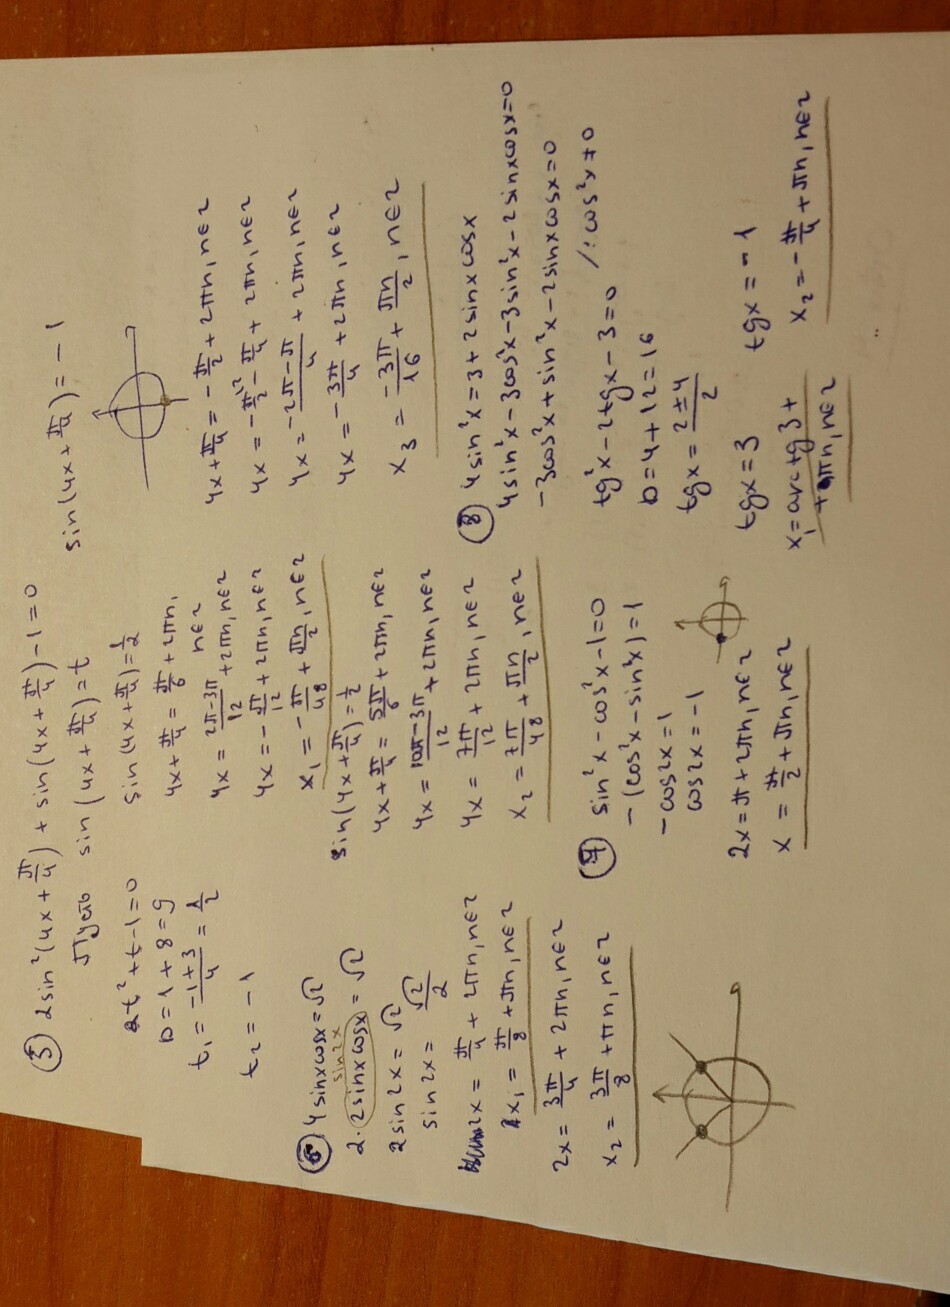 ⑤ 2sin²(4x + π/4) + sin(4x + π/4) - 1 = 0
Пусть sin(4x + π/4) = t
2t² + t - 1 = 0
D = 1 + 8 = 9
t₁ = (-1+3)/4 = 1/2
t₂ = -1
sin(4x + π/4) = 1/2
4x + π/4 = π/6 + 2πn,
n∈z
4x = (2π-3π)/12 + 2πn, n∈z
4x = -π/12 + 2πn, n∈z
x₁ = -π/48 + πn/2, n∈z
sin(4x + π/4) = 1/2
4x + π/4 = 5π/6 + 2πn, n∈z
4x = (10π-3π)/12 + 2πn, n∈z
4x = 7π/12 + 2πn, n∈z
x₂ = 7π/48 + πn/2, n∈z
sin(4x + π/4) = -1
4x + π/4 = -π/2 + 2πn, n∈z
4x = -π/2 - π/4 + 2πn, n∈z
4x = (-2π-π)/4 + 2πn, n∈z
4x = -3π/4 + 2πn, n∈z
x₃ = -3π/16 + πn/2, n∈z
⑥ 4sinxcosx = √2
sin2x
2·2sinxcosx = √2
2sin2x = √2
sin2x = √2/2
2x = π/4 + 2πn, n∈z
x₁ = π/8 + πn, n∈z
2x = 3π/4 + 2πn, n∈z
x₂ = 3π/8 + πn, n∈z
⑦ sin²x - cos²x - 1 = 0
-(cos²x - sin²x) = 1
-cos2x = 1
cos2x = -1
2x = π + 2πn, n∈z
x = π/2 + πn, n∈z
⑧ 4sin²x = 3 + 2sinxcosx
4sin²x - 3cos²x - 3sin²x - 2sinxcosx = 0
-3cos²x + sin²x - 2sinxcosx = 0
/: cos²x ≠ 0
tg²x - 2tgx - 3 = 0
D = 4 + 12 = 16
tgx = (2±4)/2
tgx = 3
x₁ = arctg3 +
+ πn, n∈z
tgx = -1
x₂ = -π/4 + πn, n∈z